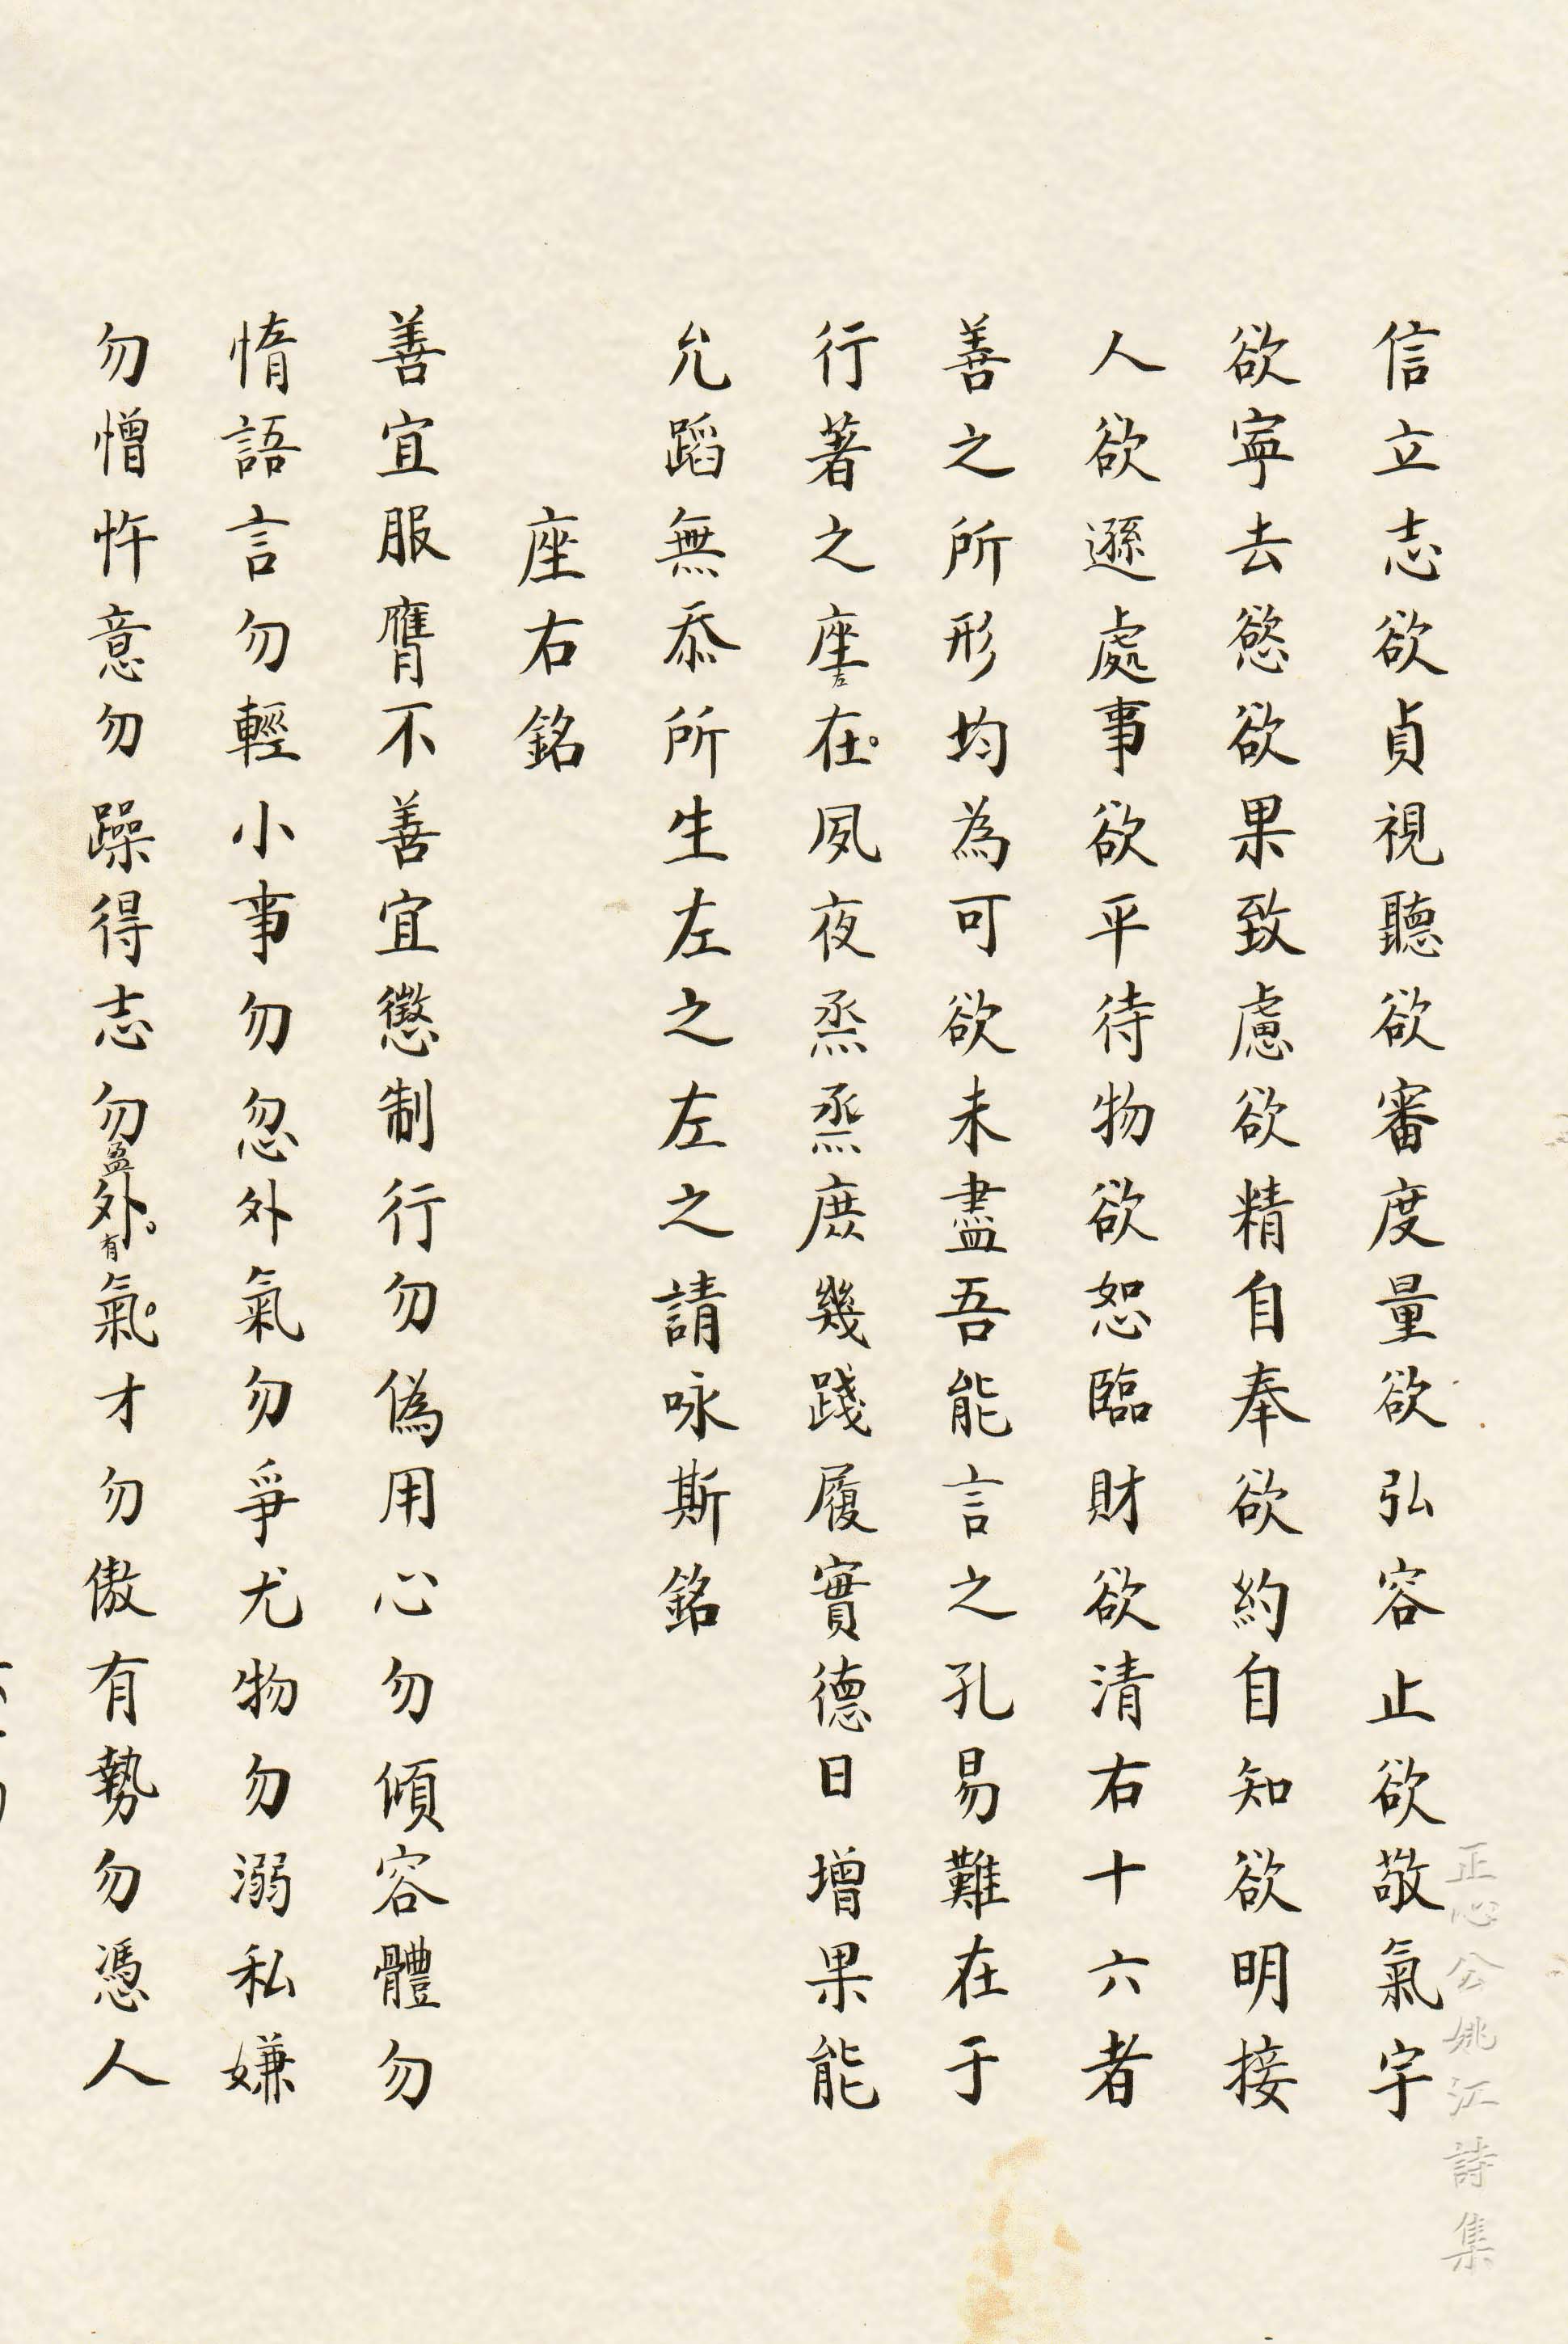 信立志欲貞視聽欲審度量欲弘容止欲敬氣宇
欲寧去慾欲果致慮欲精自奉欲約自知欲明接
人欲遜處事欲平待物欲恕臨財欲清右十六者
善之所形均為可欲未盡吾能言之孔易難在于
行著之座左在夙夜烝烝庶幾踐履實德日增果能
允蹈無忝所生左之左之請咏斯銘
座右銘
善宜服膺不善宜懲制行勿偽用心勿傾容體勿
惰語言勿輕小事勿忽外氣勿爭尤物勿溺私嫌
勿憎忤意勿躁得志勿盈外有氣才勿傲有勢勿憑人
正心公姚江詩集